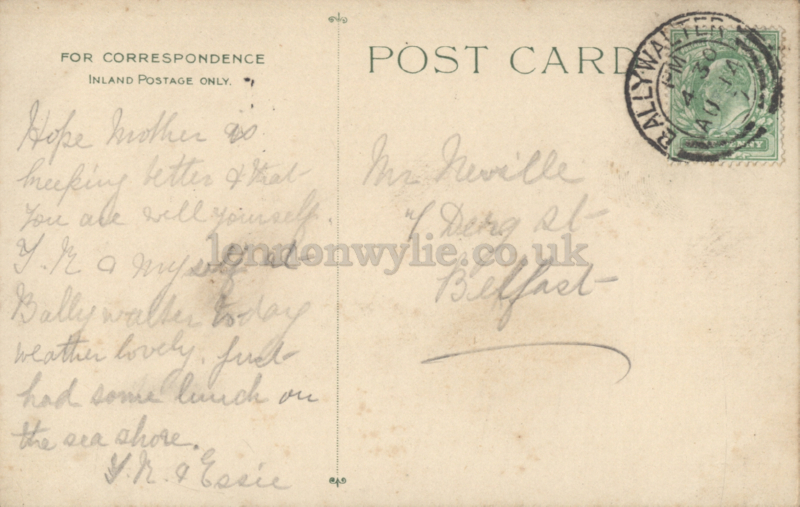 FOR CORRESPONDENCE
INLAND POSTAGE ONLY.
POST CARD
BALLYWALTER
4 30 PM
AU 14
Hope Mother is
keeping better & that
you are well yourself.
& myself at
Ballywalter to-day
weather lovely. Just
had some lunch on
the sea shore.
& Essie
Mr Neville
Derg St
Belfast
lennonwylie.co.uk